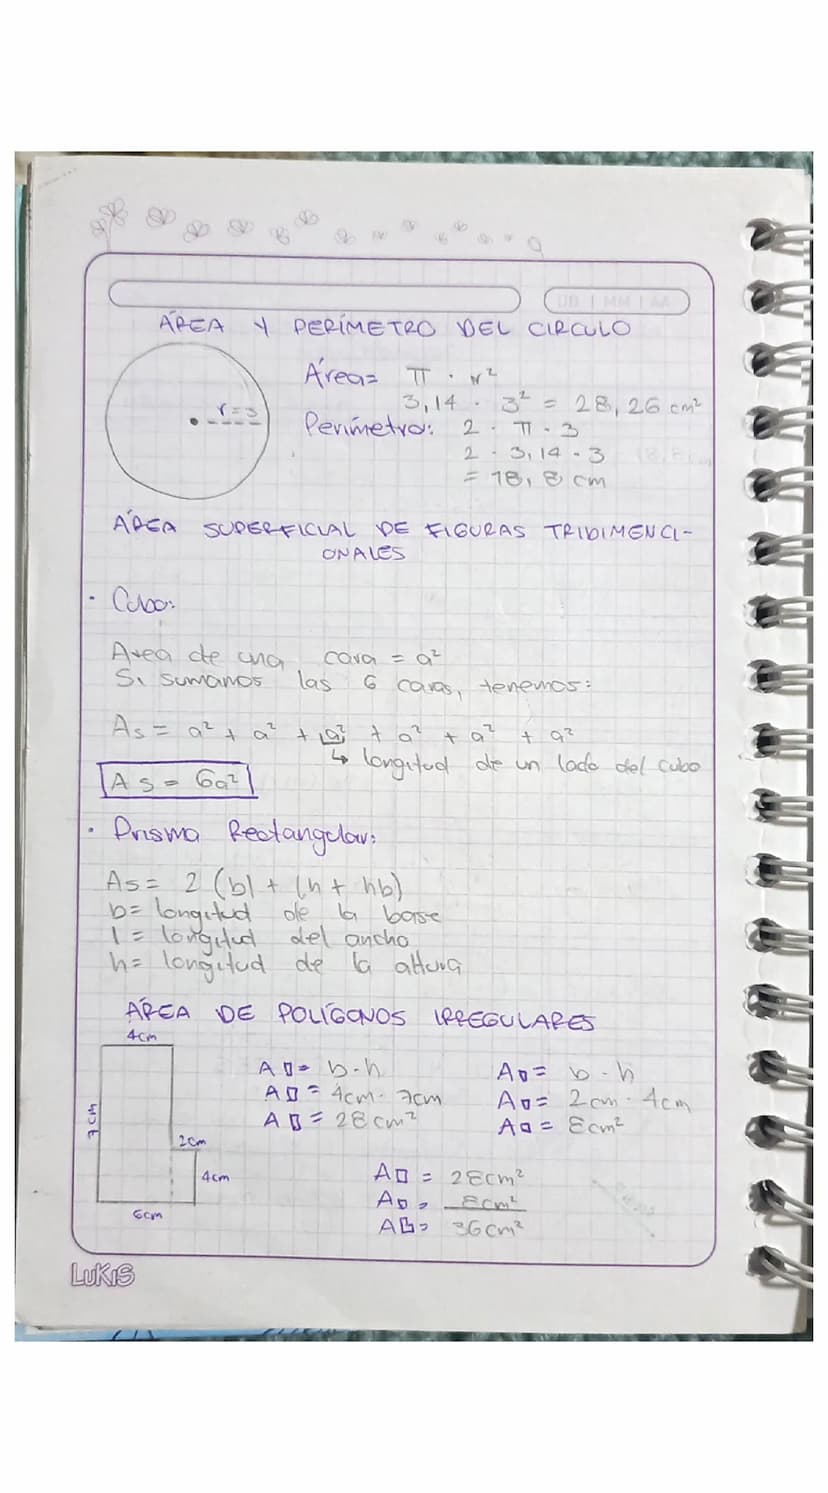 DD | MM | AA
ÁREA Y PERÍMETRO DEL CIRCULO
r = 3
Área= π · r²
3,14 · 3² = 28,26 cm²
Perímetro: 2 · π · 3
2 · 3,14 · 3
= 18,8 cm
ÁREA SUPERFICIAL DE FIGURAS TRIDIMENCI-
ONALES
· Cubo:
Area de una cara = a²
Si sumamos las 6 caras, tenemos:
As = a² + a² + a² + a² + a² + a²
↳ longitud de un lado del cubo
As = 6a²
· Prisma Rectangular:
As = 2 (bl + lh + hb)
b= longitud de la base
l = longitud del ancho
h= longitud de la altura
ÁREA DE POLÍGONOS IRREGULARES
4cm
7cm
2cm
4cm
6cm
A▯= b·h
A▯= 4cm· 7cm
A▯= 28cm²
A▫= b·h
A▫= 2cm· 4cm
A▫= 8cm²
A▯ = 28cm²
A▫ = 8cm²
A = 36cm²
LUKIS